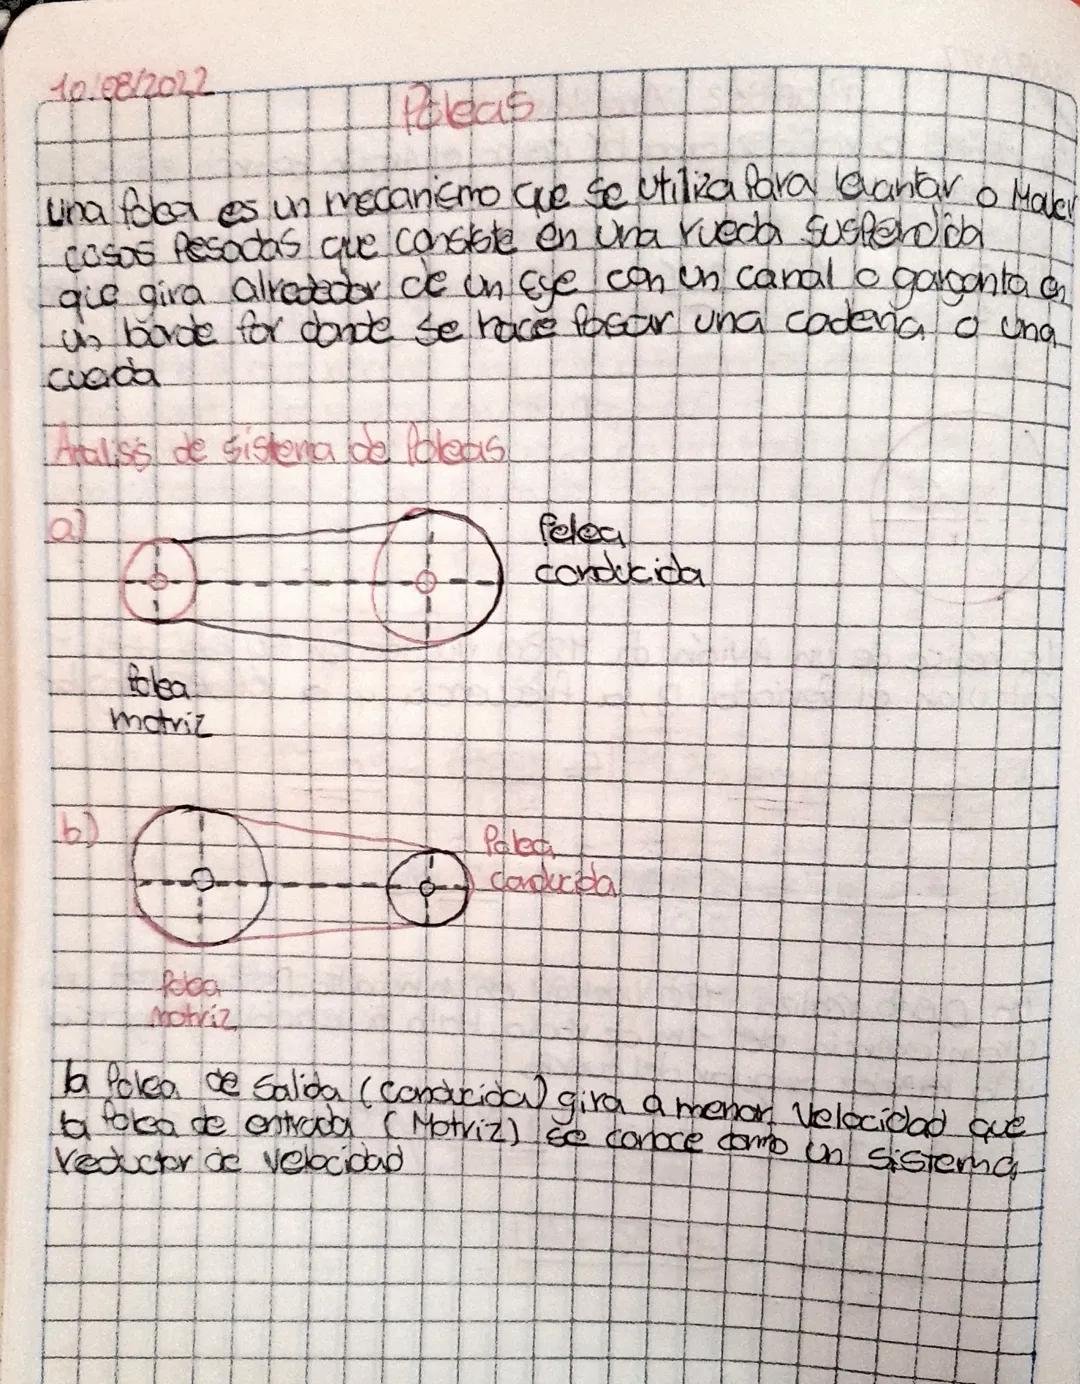 10/08/2022
Poleas
Una polea es un mecanismo que se utiliza Para levantar o Mover
cosas Pesadas que consiste en una rueda suspendida
que gira alrededor de un Eje con un canal o garganta en
un borde por donde se hace pasar una cadena o una
cuerda
Analisis de sistema de Poleas
a)
Polea
conducida
Polea
motriz
b)
Polea
conducida
Polea
motriz
la Polea de Salida (conducida) gira a menor velocidad que
la Polea de entrada (Motriz) se conoce como un sistema
reductor de velocidad